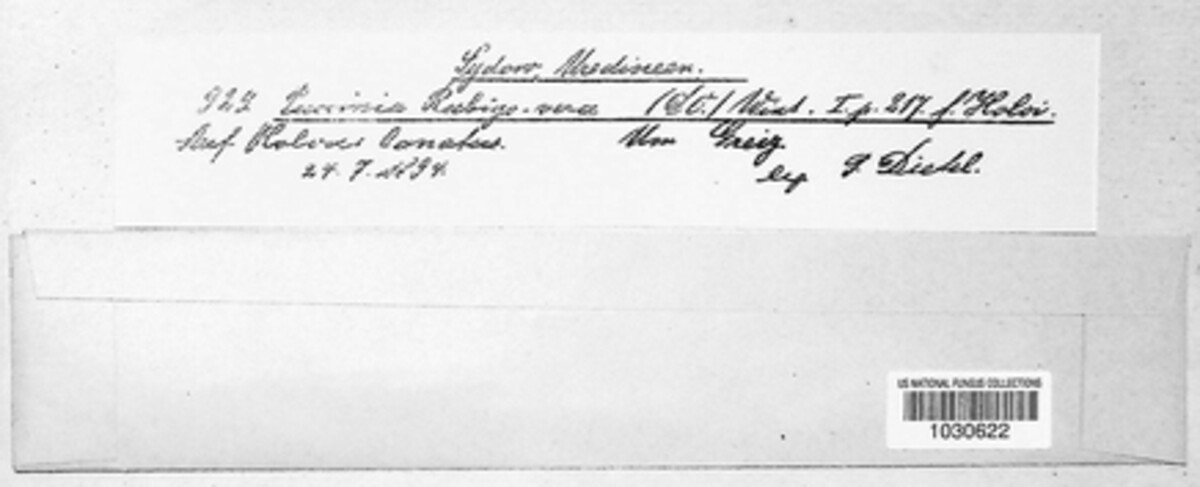 Sydow, Uredineen.
927. Puccinia Rubigo-vera (DC.) Wint. I. p. 217. f. Holci.
Auf Holcus lanatus. Um Greiz.
24. 7. 1894. leg. P. Dietel.
US NATIONAL FUNGUS COLLECTIONS
1030622